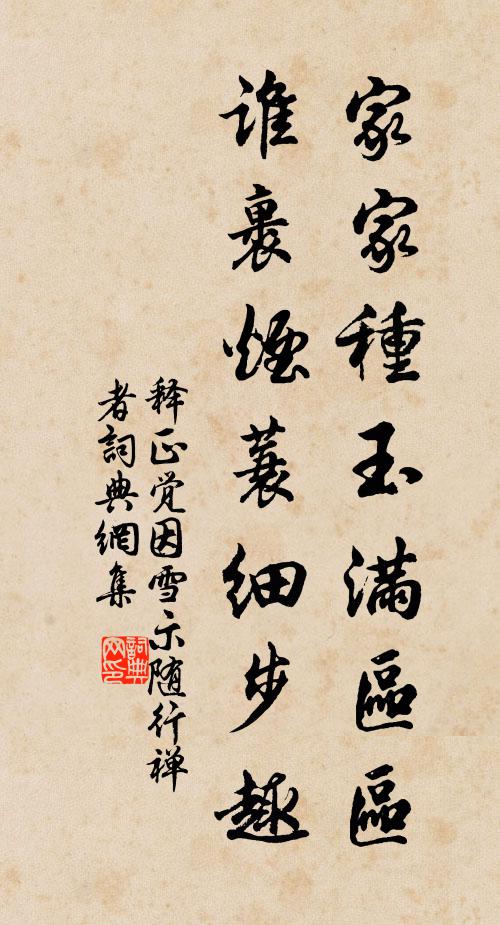 家家種玉滿區區
誰裹煙蓑細步趣
释正觉因雪示随行禅
者詞典網集
詞典
网印